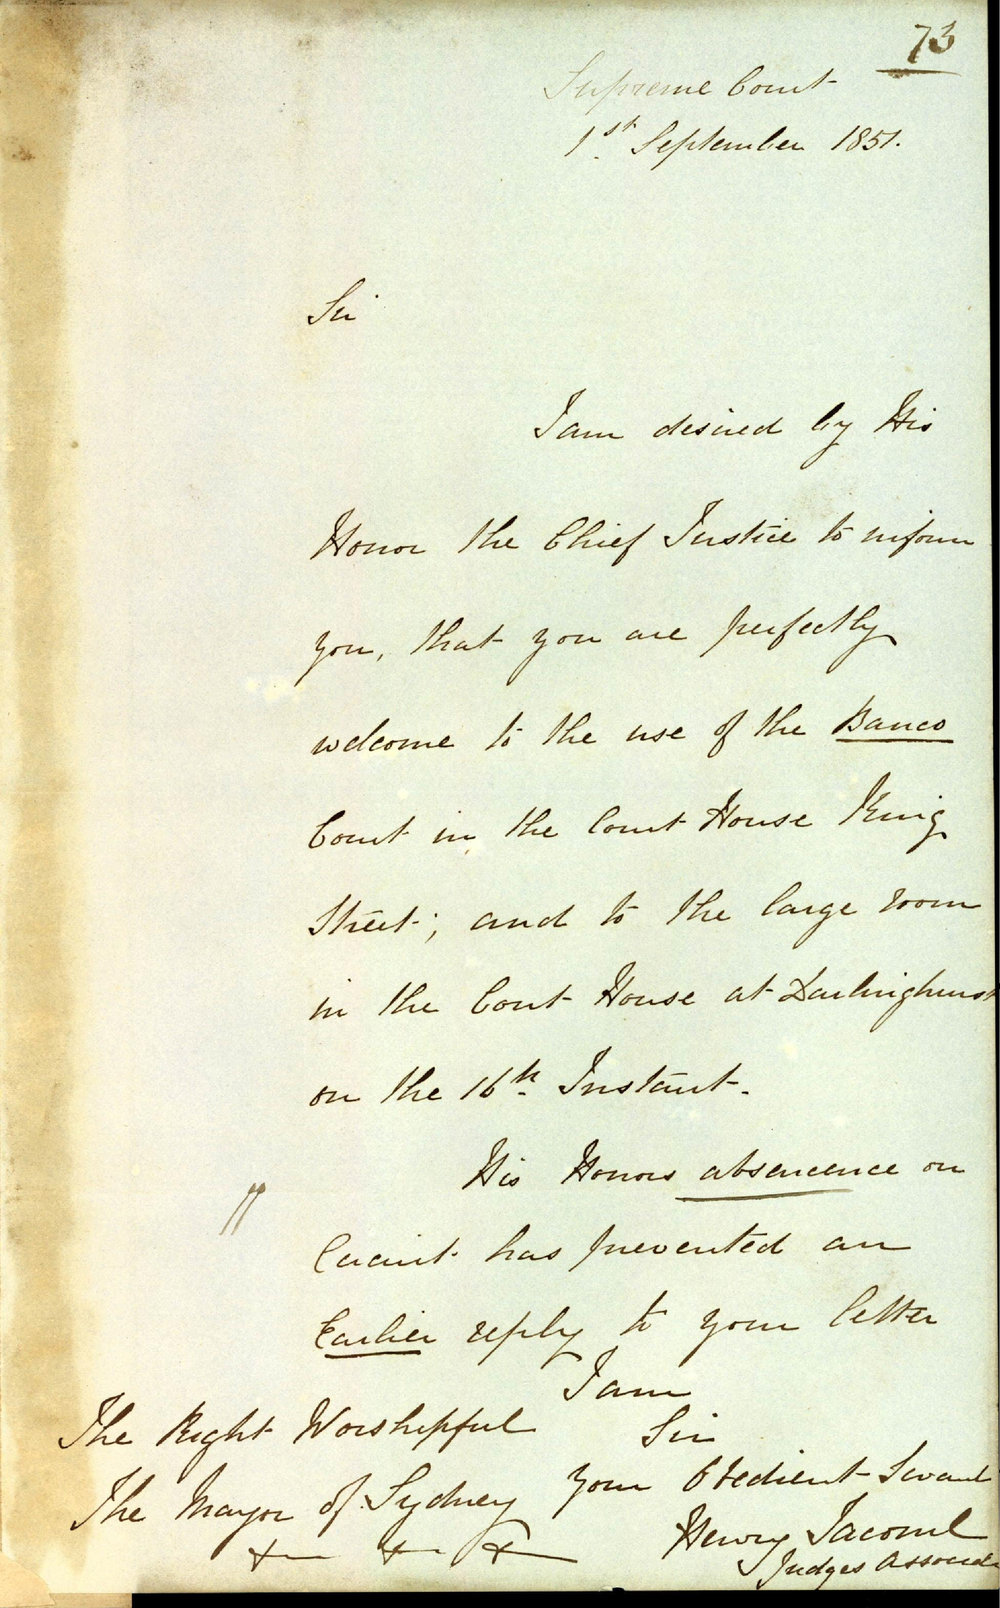 73
Supreme Court
1st September 1851.
Sir
I am desired by His
Honor the Chief Justice to inform
you, that you are perfectly
welcome to the use of the Banco
Court in the Court House King
Street; and to the large room
in the Court House at Darlinghurst
on the 16th Instant.
His Honors absencence on
Circuit has prevented an
Earlier reply to your letter
I am
Sir
Your Obedient Servant
Henry
Judges Associate
The Right Worshipful
The Mayor of Sydney